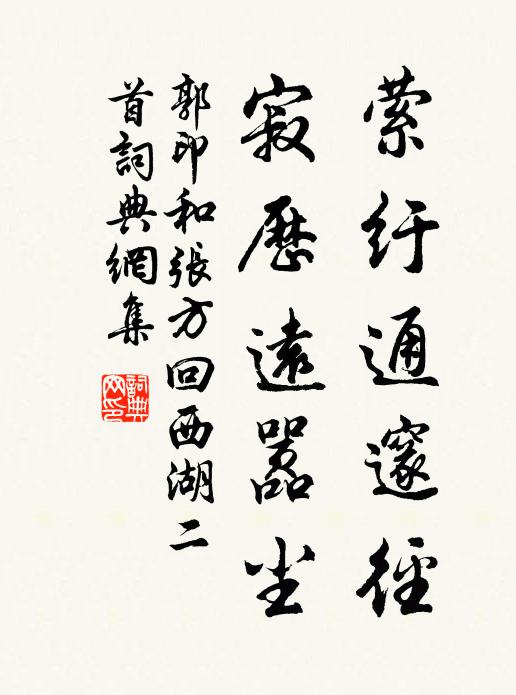 萦紆通邃徑
寂歷遠囂尘
郭印和張方回西湖二
首詞典網集
詞典网印